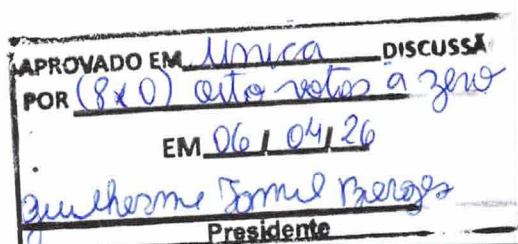 APROVADO EM Unica DISCUSSÃ
POR (8x0) oito votos a zero
EM 06 / 04 / 26
Guilherme
Presidente